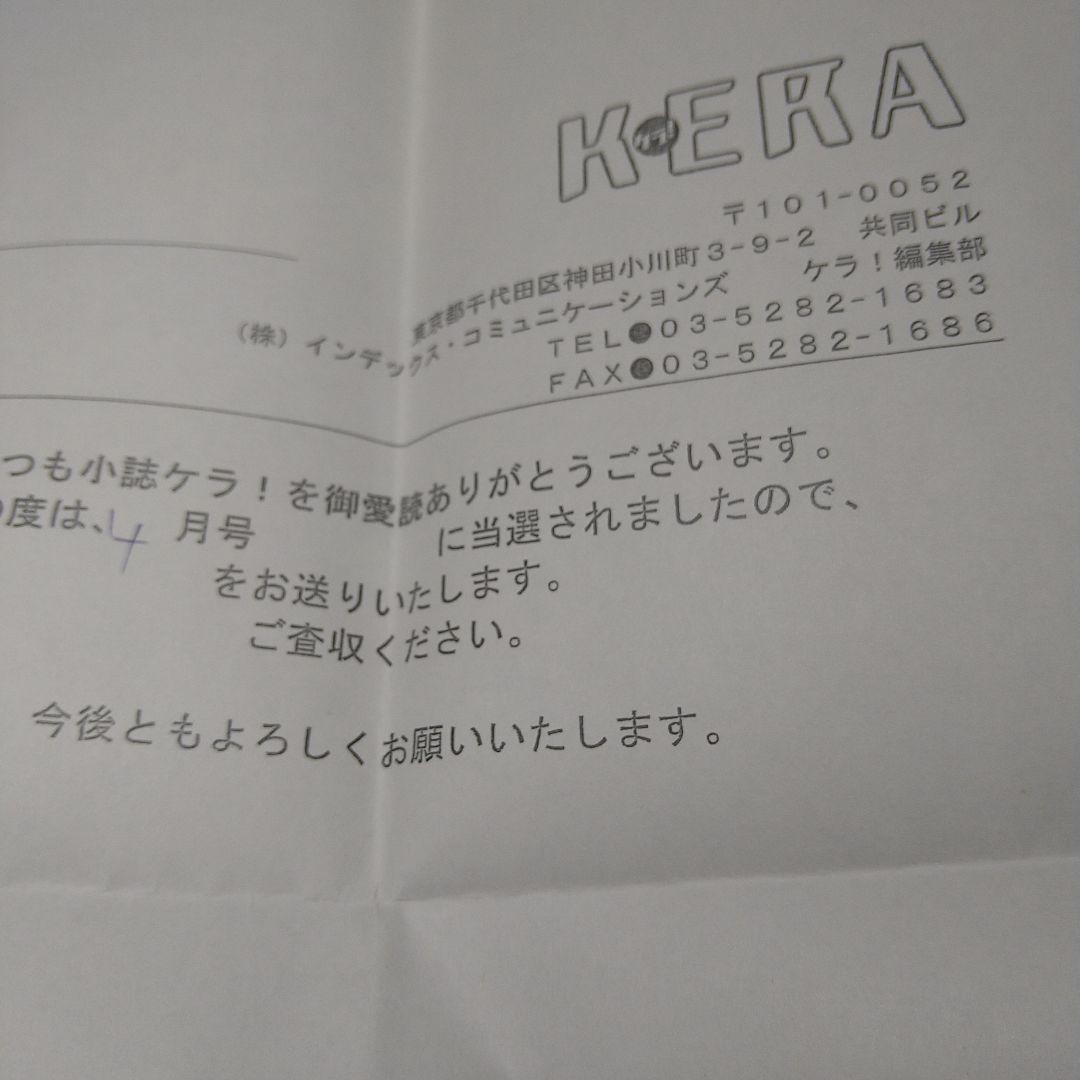 KERA
〒101-0052
東京都千代田区神田小川町3-9-2 共同ビル
(株)インデックス・コミュニケーションズ ケラ!編集部
TEL●03-5282-1683
FAX●03-5282-1686
つも小誌ケラ!を御愛読ありがとうございます。
度は、4月号 に当選されましたので、
をお送りいたします。
ご査収ください。
今後ともよろしくお願いいたします。